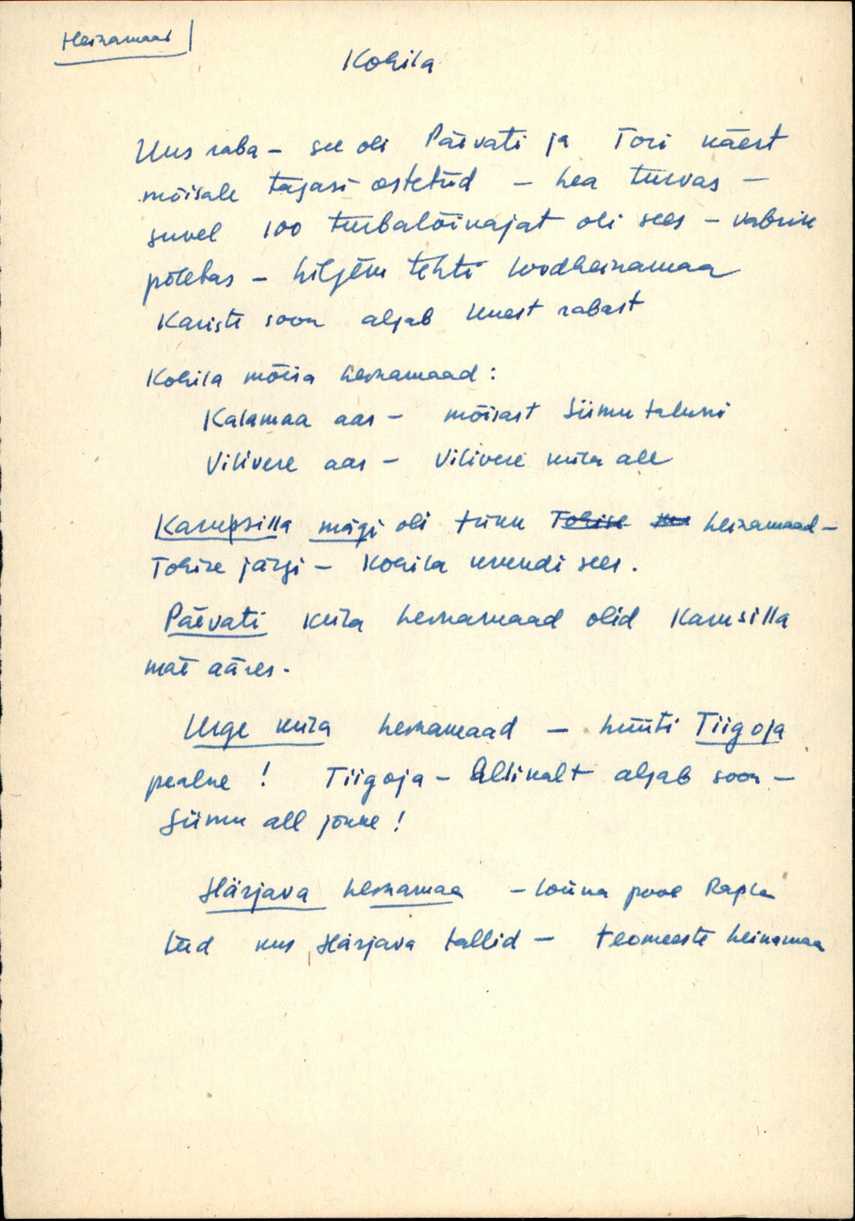 Heinamaad
Kohila
Uus raba – see oli Päivati ja Tori käest
mõisale tagasi ostetud – hea turvas –
suvel 100 turbalõikajat oli sees – vabrik
põletas – hiljem tehti loodheinamaa
Kariste soon algab Uuest rabast
Kohila mõisa heinamaad:
Kalamaa aas – mõisast Siimu taluni
Vilivere aas – Vilivere küla all
Karupsilla mägi oli tükk Tohise heinamaad –
Tohise järgi – Kohila krundi sees.
Päevati küla heinamaad olid Karusilla
mäe ääres.
Urge küla heinamaad – hüüti Tiigoja
pealne! Tiigoja – Allikalt algab soon –
Siimu all jõkke!
Härjava heinamaa – lõuna pool Rapla
teed kus Härjava tallid – teomeeste heinamaa